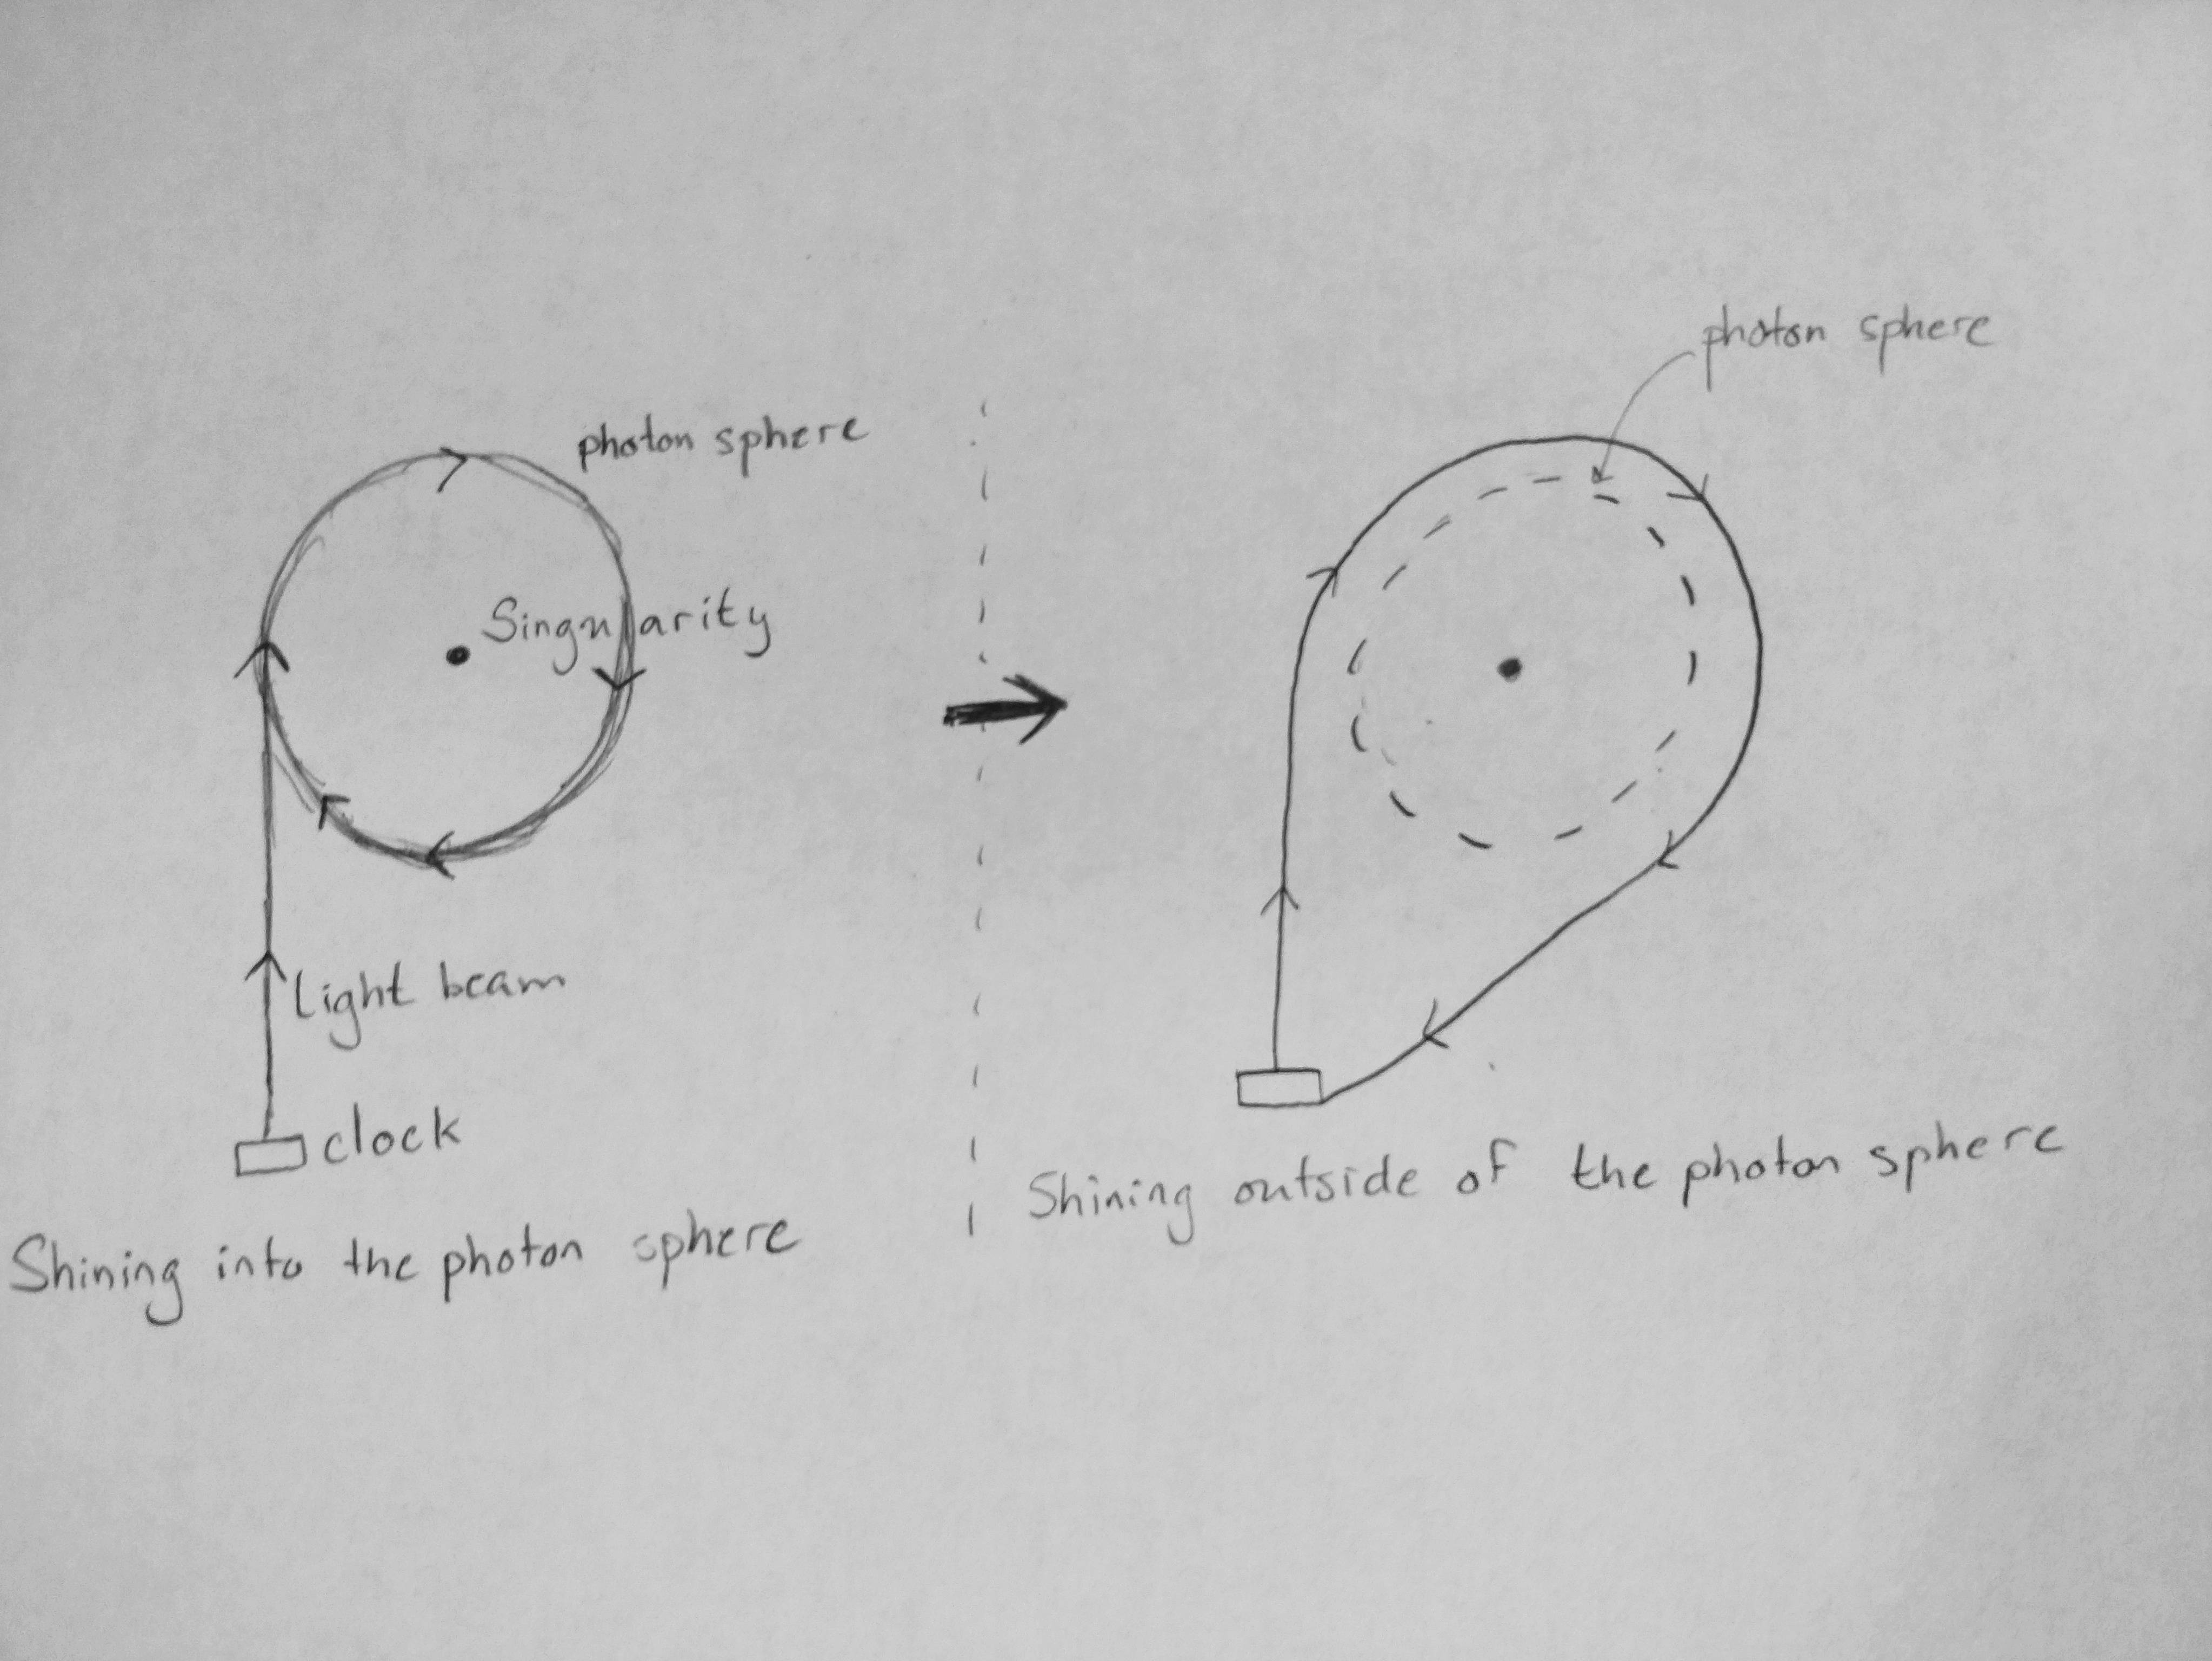 photon sphere
Singularity
Light beam
clock
Shining into the photon sphere
photon sphere
Shining outside of the photon sphere